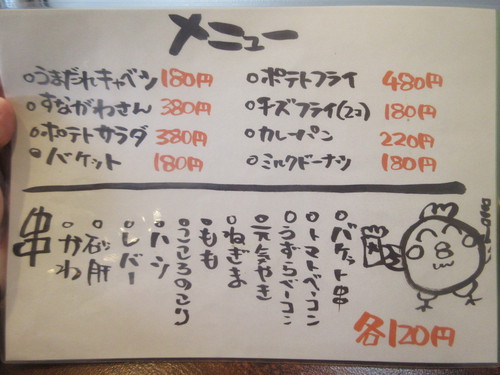 メニュー
○うまだれキャベツ 180円
○すながわさん 380円
○ポテトサラダ 380円
○バケット 180円
○ポテトフライ 480円
○チーズフライ(2コ) 180円
○カレーパン 220円
○ミルクドーナツ 180円
○バケット串
○トマトベーコン
○うずらベーコン
○元気やき
○ねぎま
○もも
○こころのこり
○ハツ
○レバー
○砂肝
○かわ
串
各120円